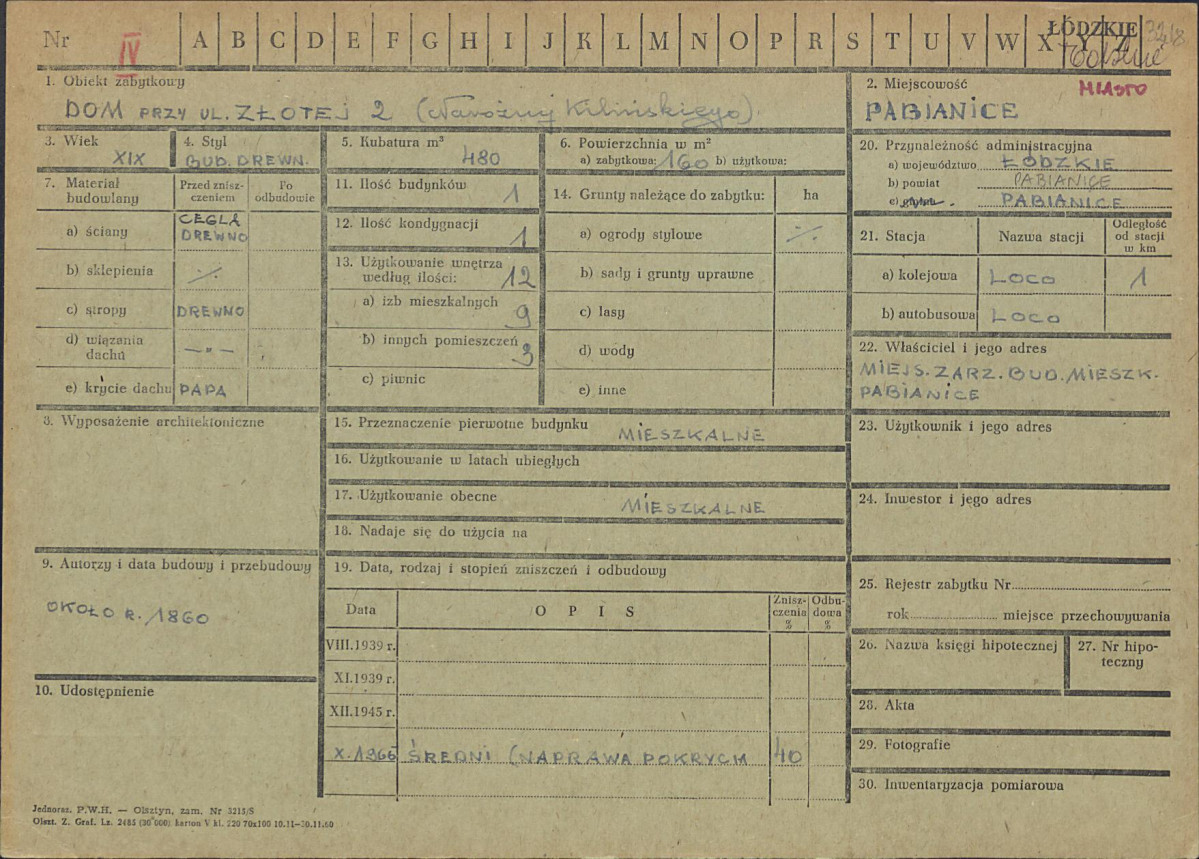 Nr IV A B C D E F G H I J K L M N O P R S T U V W X Y Z
ŁÓDZKIE
1. Obiekt zabytkowy
DOM PRZY UL. ZŁOTEJ 2 (Narożny Kilińskiego).
2. Miejscowość
MIASTO
PABIANICE
3. Wiek
XIX
4. Styl
BUD. DREWN.
5. Kubatura m³
480
6. Powierzchnia w m²
a) zabytkowa: 160 b) użytkowa:
20. Przynależność administracyjna
a) województwo ŁÓDZKIE
b) powiat PABIANICE
c) gmina. PABIANICE
7. Materiał budowlany
Przed znisz-
czeniem
Po
odbudowie
a) ściany CEGŁA
DREWNO
b) sklepienia ·/·
c) stropy DREWNO
d) wiązania
dachu — „ —
e) krycie dachu PAPA
11. Ilość budynków
1
12. Ilość kondygnacji
1
13. Użytkowanie wnętrza
według ilości: 12
a) izb mieszkalnych
9
b) innych pomieszczeń
3
c) piwnic
14. Grunty należące do zabytku: ha
a) ogrody stylowe ·/·
b) sady i grunty uprawne
c) lasy
d) wody
e) inne
21. Stacja Nazwa stacji Odległość
od stacji
w km
a) kolejowa LOCO 1
b) autobusowa LOCO
22. Właściciel i jego adres
MIEJS. ZARZ. BUD. MIESZK.
PABIANICE
8. Wyposażenie architektoniczne
15. Przeznaczenie pierwotne budynku
MIESZKALNE
16. Użytkowanie w latach ubiegłych
17. Użytkowanie obecne
MIESZKALNE
18. Nadaje się do użycia na
23. Użytkownik i jego adres
24. Inwestor i jego adres
9. Autorzy i data budowy i przebudowy
OKOŁO R. 1860
10. Udostępnienie
19. Data, rodzaj i stopień zniszczeń i odbudowy
Data OPIS Znisz-
czenia
% Odbu-
dowa
%
VIII.1939 r.
XI.1939 r.
XII.1945 r.
X.1966 ŚREDNI (NAPRAWA POKRYCIA 40
25. Rejestr zabytku Nr
rok miejsce przechowywania
26. Nazwa księgi hipotecznej
27. Nr hipo-
teczny
28. Akta
29. Fotografie
30. Inwentaryzacja pomiarowa
Jednoraz. P.W.H. — Olsztyn, zam. Nr 3215/S
Olszt. Z. Graf. Lz. 2485 (30 000) karton V kl. 220 70x100 10.11—30.11.60